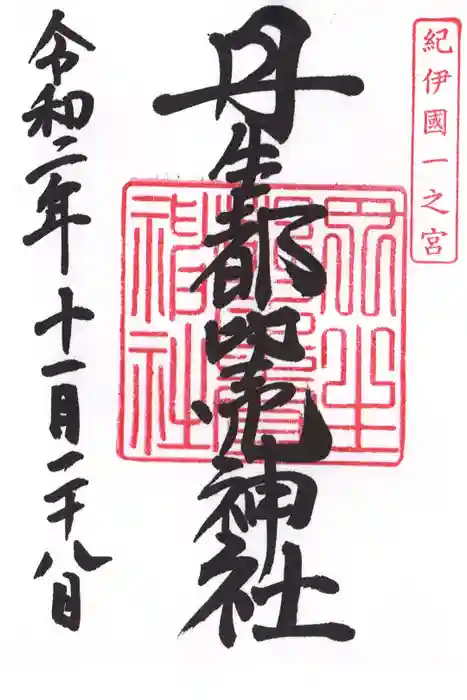 紀伊國一之宮
丹生都比売神社
丹生都比賣神社
令和二年十一月二十八日